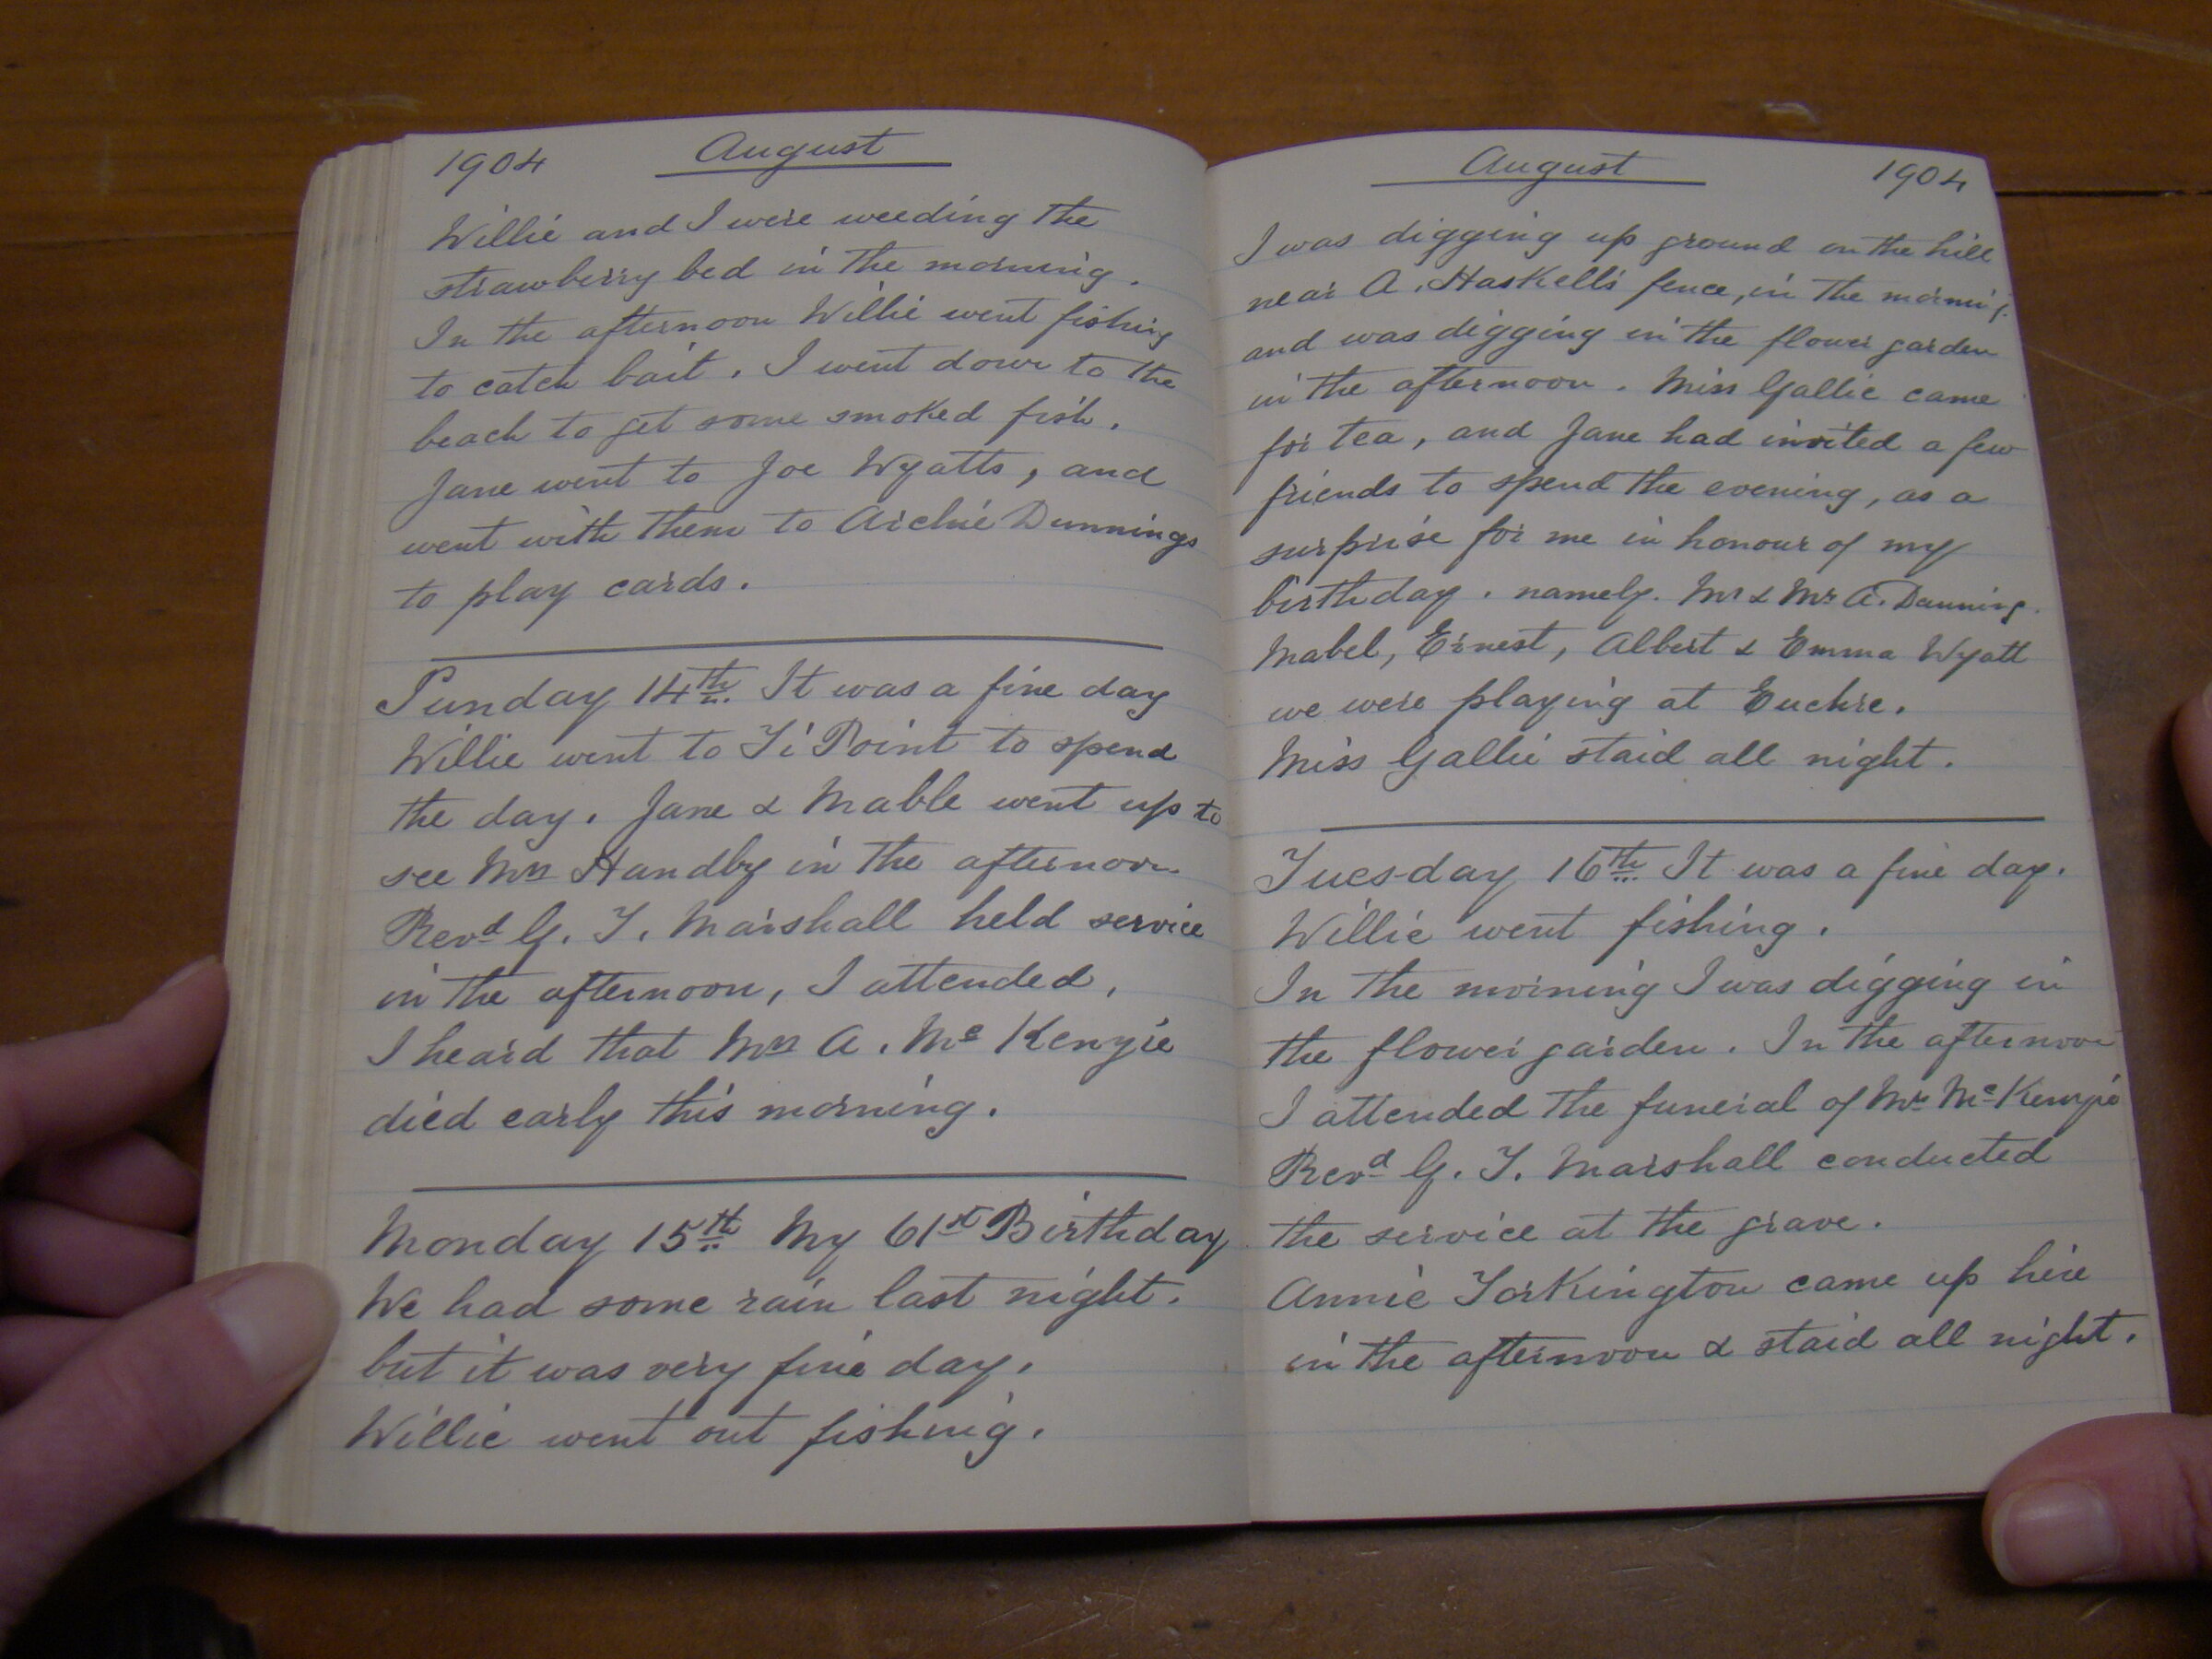 1904 August
Willie and I were weeding the
strawberry bed in the morning.
In the afternoon Willie went fishing
to catch bait. I went down to the
beach to get some smoked fish.
Jane went to Joe Wyatts, and
went with them to Archie Dunnings
to play cards.
Sunday 14th. It was a fine day
Willie went to Ti Point to spend
the day. Jane & Mable went up to
see Mrs Handby in the afternoon
Revd G. T. Marshall held service
in the afternoon, I attended,
I heard that Mrs A. Mc Kenzie
died early this morning.
Monday 15th My 61st Birthday
We had some rain last night.
but it was very fine day.
Willie went out fishing.
August 1904
I was digging up ground on the hill
near A. Haskell's fence, in the morning.
and was digging in the flower garden
in the afternoon. Miss Gallie came
for tea, and Jane had invited a few
friends to spend the evening, as a
surprise for me in honour of my
birthday. namely. Mr & Mrs A. Dunning.
Mabel, Ernest, Albert & Emma Wyatt
we were playing at Euchre.
Miss Gallie staid all night.
Tuesday 16th It was a fine day.
Willie went fishing.
In the morning I was digging in
the flower garden. In the afternoon
I attended the funeral of Mrs McKenzie
Revd G. T. Marshall conducted
the service at the grave.
Annie Torkington came up here
in the afternoon & staid all night.